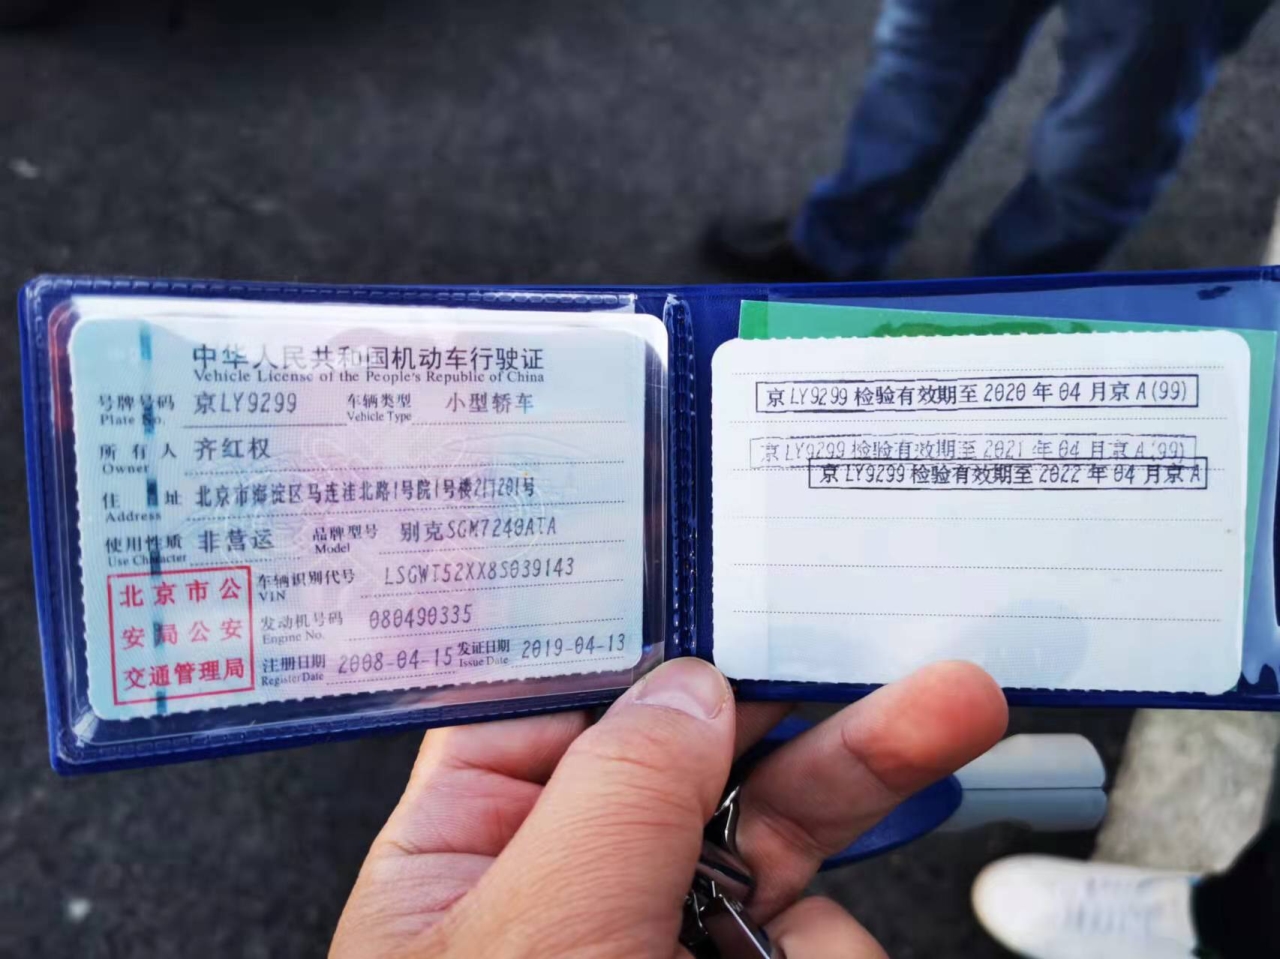 中华人民共和国机动车行驶证
Vehicle License of the People's Republic of China
号牌号码 京LY9299 车辆类型 小型轿车
Plate No. Vehicle Type
所有人 齐红权
Owner
住址 北京市海淀区马连洼北路1号院1号楼2门201号
Address
使用性质 非营运 品牌型号 别克SGM7240ATA
Use Character Model
车辆识别代号 LSGWT52XX8S039143
VIN
发动机号码 080490335
Engine No.
注册日期 2008-04-15 发证日期 2019-04-13
Register Date Issue Date
北京市公
安局公安
交通管理局
京LY9299检验有效期至2020年04月京A(99)
京LY9299检验有效期至2021年04月京A(99)
京LY9299检验有效期至2022年04月京A